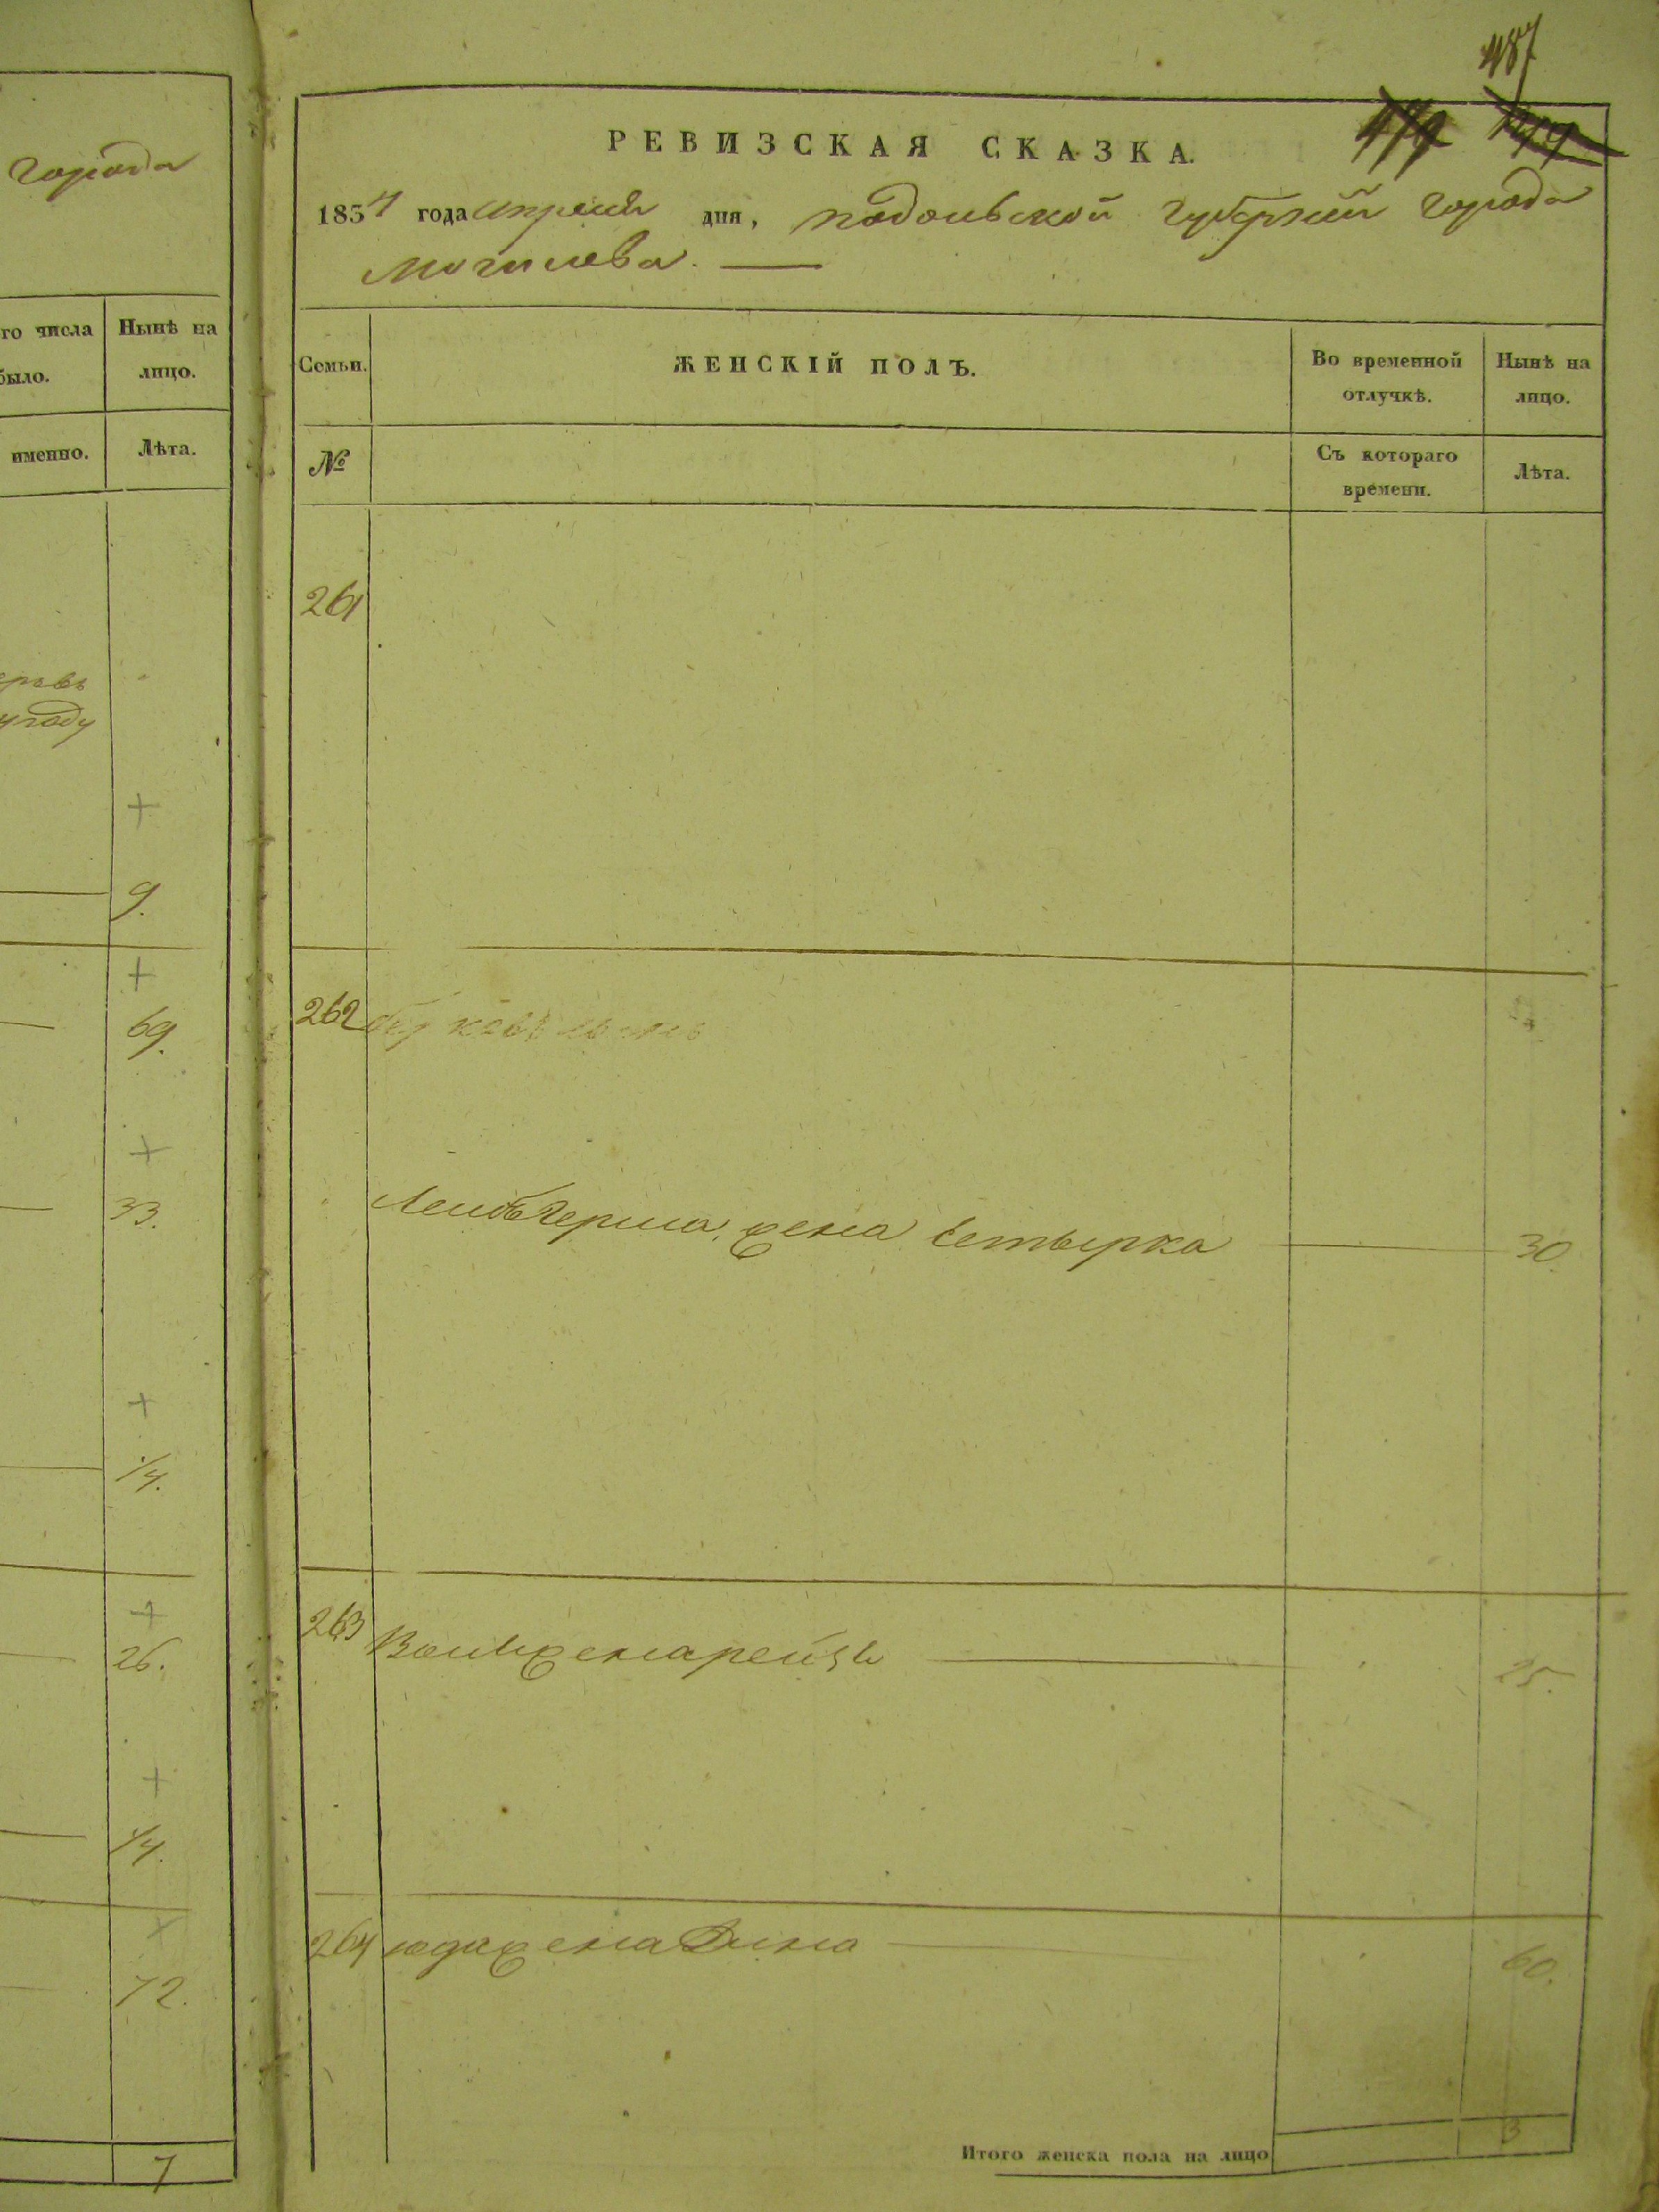 города
го числа
было.
Нынѣ на
лицо.
именно.
Лѣта.
году
+
9.
+
69.
+
33.
+
14.
+
26.
+
14.
+
72.
7
487
РЕВИЗСКАЯ СКАЗКА.
1857 года апреля дня, Подольской Губернии города
Могилева.
Семьи.
ЖЕНСКІЙ ПОЛЪ.
Во временной
отлучкѣ.
Нынѣ на
лицо.
№
Съ котораго
времени.
Лѣта.
261
262
Лейбъ Герша, жена Етырка 30.
263 жена рейзя 25.
264 жена Дина 60.
Итого женска пола на лицо 3